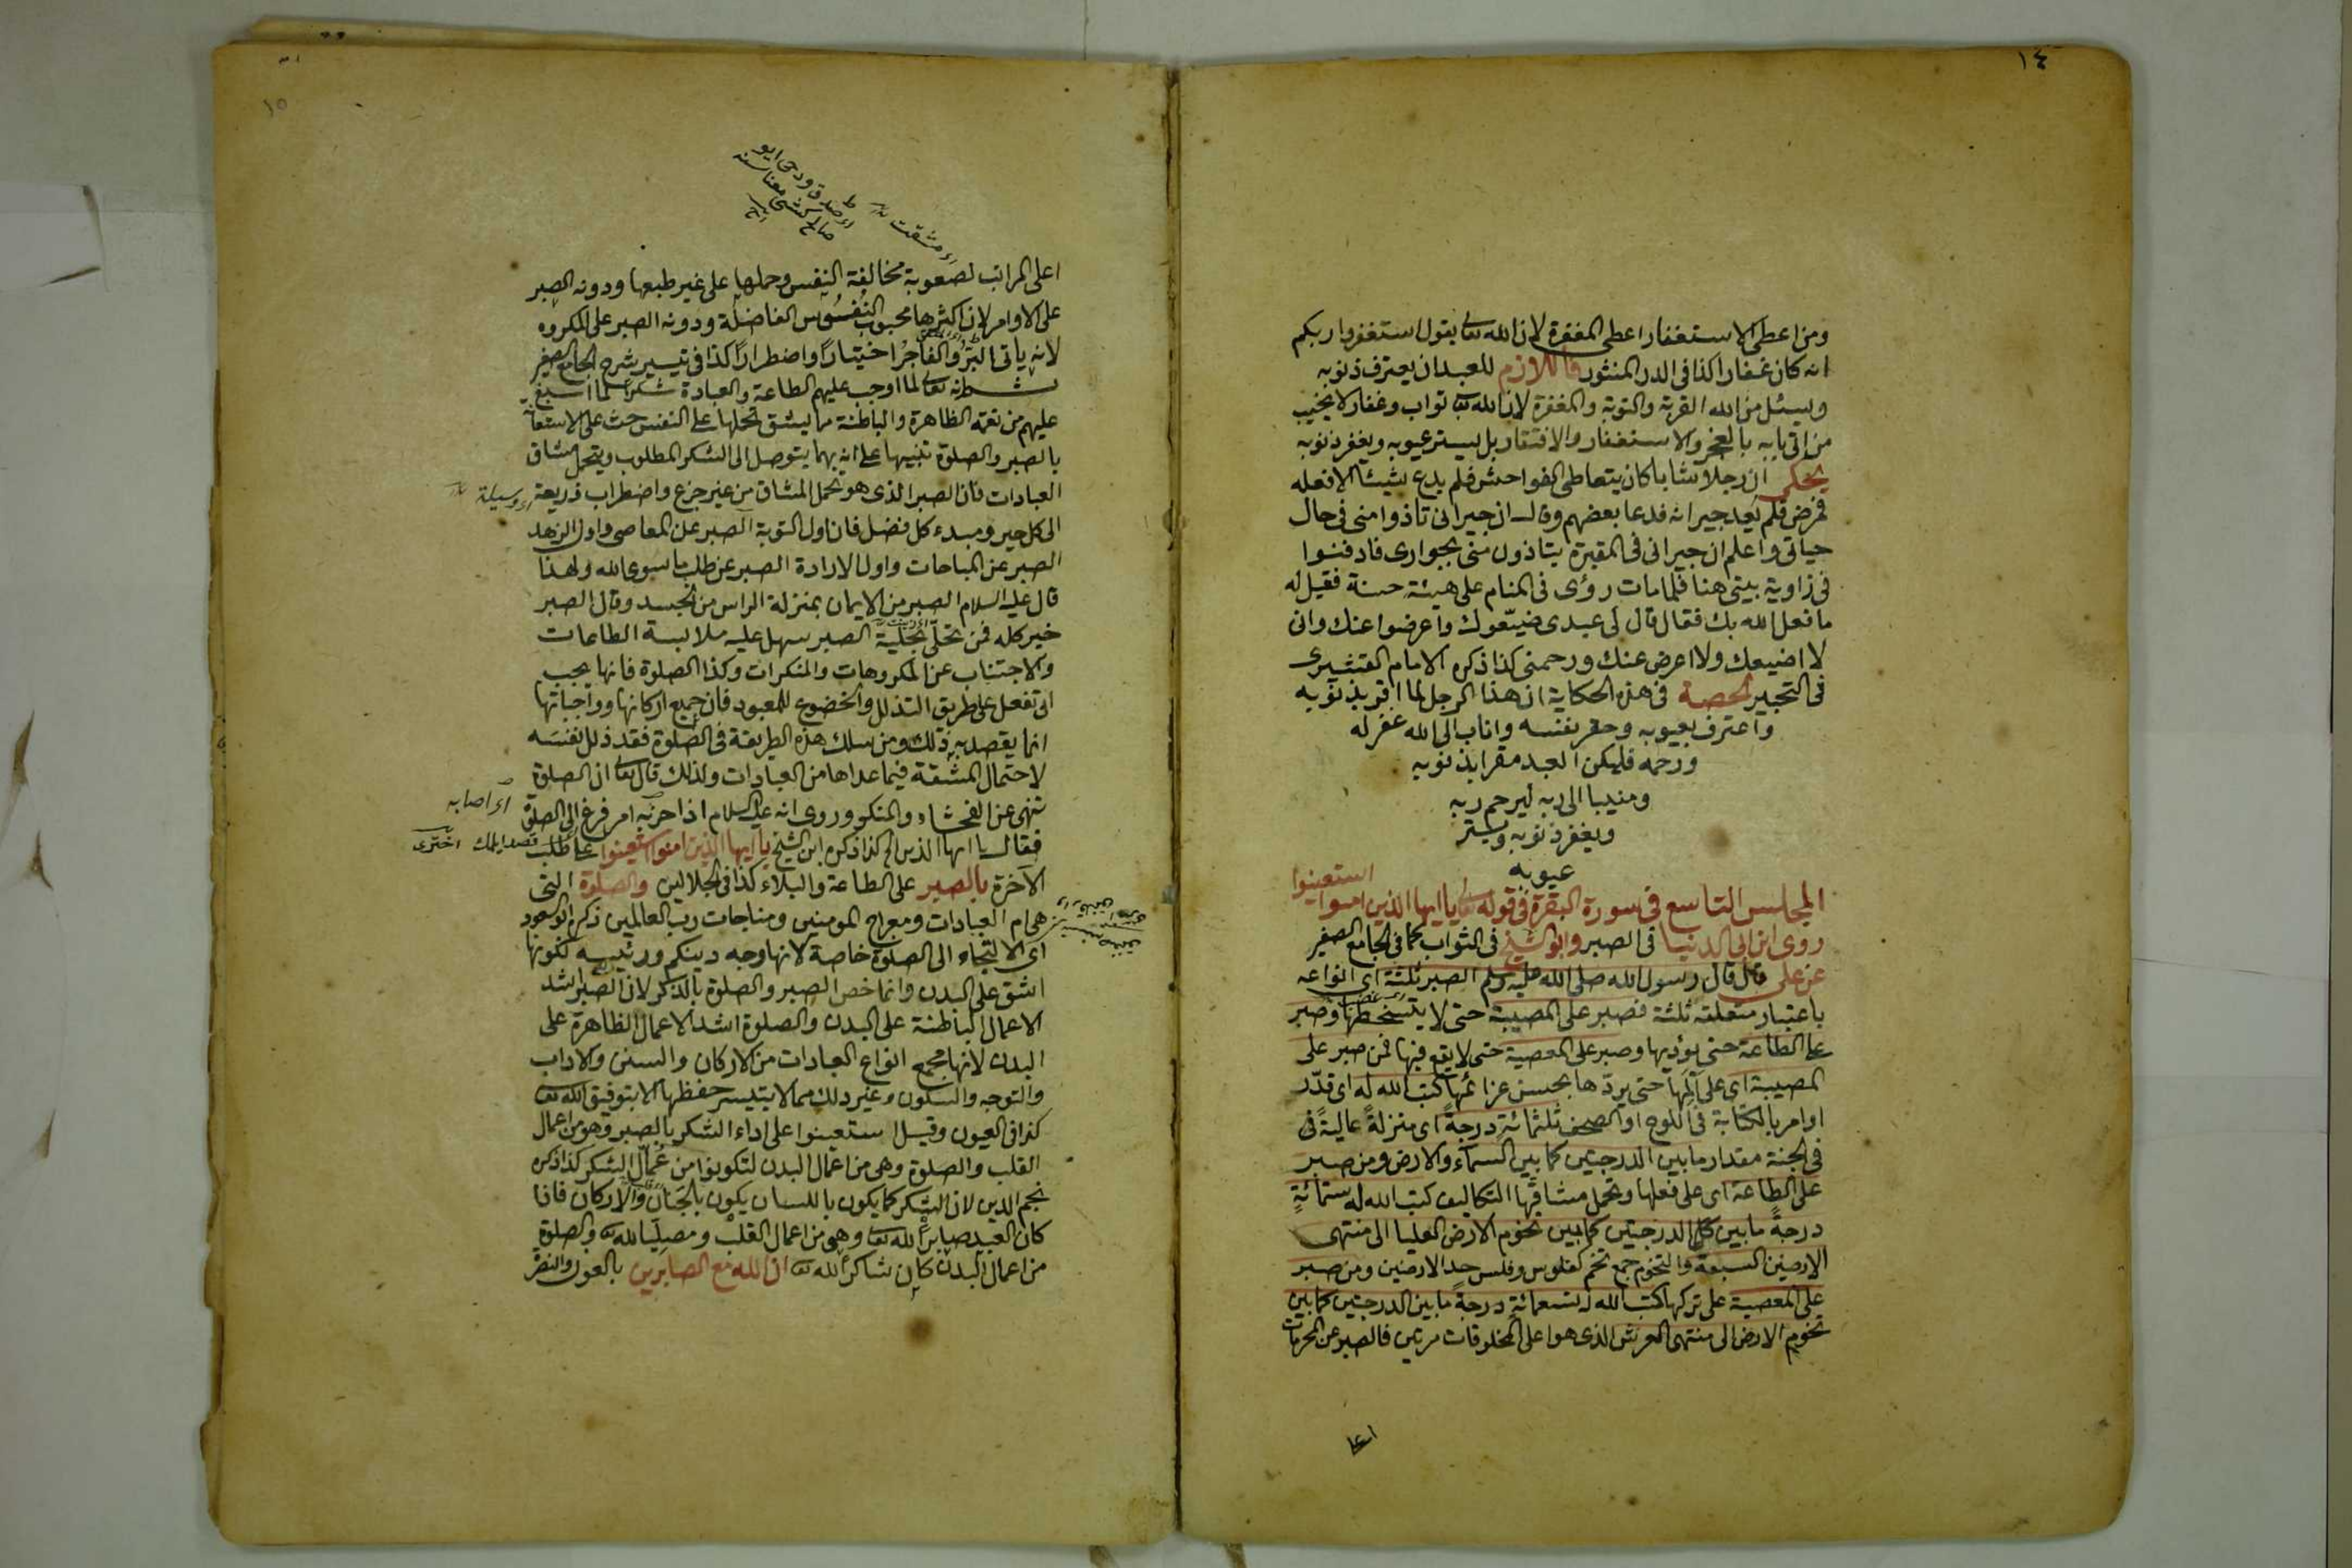 ١٤
ومن اعطى الاستغفار اعطى المغفرة لان الله تعالى يقول استغفروا ربكم
انه كان غفارا كذا فى الدر المنثور فاللازم للعبد ان يعترف ذنوبه
ويسئل من الله القربة والتوبة والمغفرة لان الله تعالى تواب وغفار لا يخيب
من اتى بابه بالعجز والاستغفار والافتقار بل يستر عيوبه ويغفر ذنوبه
يحكى ان رجلا شابا كان يتعاطى الفواحش فلم يدع شيئا الا فعله
فمرض فلم يعد جيرانه فدعا بعضهم وقال ان جيرانى تاذوا منى فى حال
حياتى واعلم ان جيرانى فى المقبرة يتاذون منى بجوارى فادفنوا
فى زاوية بيتى هنا فلما مات رؤى فى المنام على هيئة حسنة فقيل له
ما فعل الله بك فقال قال لى عبدى ضيّعوك واعرضوا عنك وانى
لا اضيعك ولا اعرض عنك ورحمنى كذا ذكره الامام القشيرى
فى التحبير الحصة فى هذه الحكاية ان هذا الرجل لما اقر بذنوبه
واعترف بعيوبه وحقر نفسه واناب الى الله غفر له
ورحمه فليكن العبد مقرا بذنوبه
ومنيبا الى ربه ليرحم ربه
ويغفر ذنوبه ويستر
عيوبه
المجلس التاسع فى سورة البقرة فى قوله تعالى يا ايها الذين امنوا استعينوا
روى ابن ابى الدنيا فى الصبر وابو الشيخ فى الثواب كما فى الجامع الصغير
عن على قال قال رسول الله صلى الله عليه وسلم الصبر ثلثة اى انواعه
باعتبار متعلقه ثلثة فصبر على المصيبة حتى لا يتسخطها وصبر
على الطاعة حتى يؤديها وصبر على المعصية حتى لا يقع فيها فمن صبر على
المصيبة اى على المها حتى يردّها بحسن عزائها كتب الله له اى قدّر
او امر بالكتابة فى اللوح او الصحف ثلثمائة درجةً اى منزلةً عاليةً فى
فى الجنة مقدار ما بين الدرجتين كما بين السمآء والارض ومن صبر
على الطاعة اى على فعلها وتحمل مشاقها التكاليف كتب الله له ستمائةٍ
درجةً ما بين كل الدرجتين كما بين تخوم الارض العليا الى منتهى
الارضين السبعة والتخوم جمع تخم كفلوس وفلس حد الارضين ومن صبر
على المعصية على تركها كتب الله له تسعمائةٍ درجةً ما بين الدرجتين كما بين
تخوم الارض الى منتهى العرش الذى هو اعلى المخلوقات مرتين فالصبر عن المحرمات
اعلى
١٥
اى مشقت
اعلى المراتب لصعوبة مخالفة النفس وحملها على غير طبعها ودونه الصبر
على الاوامر لان اكثرها محبوب النفوس الفاضلة ودونه الصبر على المكروه
لانه ياتى البَرُّ والفاجرُ اختيارًا واضطرارًا كذا فى تيسير شرح الجامع الصغير
انه تعالى لما اوجب عليهم الطاعة والعبادة شكرا لما اسبغ
عليهم من نعمه الظاهرة والباطنة مما يشق تحملها على النفس حث على الاستعانة
بالصبر والصلوة تنبيها على انه بهما يتوصل الى الشكر المطلوب ويتحمل مشاق
العبادات فان الصبر الذى هو تحمل المشاق من غير جزع واضطراب ذريعة
اى وسيلة
الى كل خير ومبدء كل فضل فان اول التوبة الصبر عن المعاصى واول الزهد
الصبر عن المباحات واول الارادة الصبر عن طلب ما سوى الله ولهذا
قال عليه السلام الصبر من الايمان بمنزلة الراس من الجسد وقال الصبر
خير كله فمن تحلّى بحلية الصبر سهل عليه ملابسة الطاعات
والاجتناب عن المكروهات والمنكرات وكذا الصلوة فانها يجب
ان تفعل على طريق التذلل والخضوع للمعبود فان جميع اركانها وواجباتها
انما يقصد به ذلك ومن سلك هذه الطريقة فى الصلوة فقد ذلل نفسَه
لاحتمال المشقة فيما عداها من العبادات ولذلك قال تعالى ان الصلوة
تنهى عن الفحشاء والمنكر وروى انه عليه السلام اذا حزبه امر فزع الى الصلوة
اى اصابه
فقال يا ايها الذين الخ كذا ذكره ابن الشيخ يا ايها الذين امنوا استعينوا على طلب
الآخرة بالصبر على الطاعة والبلاء كذا فى الجلالين والصلوة التى
هى ام العبادات ومعراج المومنين ومناجات رب العالمين ذكره ابو السعود
اى الالتجاء الى الصلوة خاصة لانها وجه دينكم ورئيسه لكونها
اشق على البدن وانما خص الصبر والصلوة بالذكر لان الصبر اشد
الاعمال الباطنة على البدن والصلوة اشد الاعمال الظاهرة على
البدن لانها مجمع انواع العبادات من الاركان والسنن والاداب
والتوجه والسكون وغير ذلك مما لا يتيسر حفظها الا بتوفيق الله تعالى
كذا فى العيون وقيل استعينوا على اداء الشكر بالصبر وهو من اعمال
القلب والصلوة وهى من اعمال البدن لتكونوا من عُمال الشكر كذا ذكره
نجم الدين لان الشكر كما يكون باللسان يكون بالجَنان والاركان فاذا
كان العبد صابراً لله تعالى وهى من اعمال القلب ومصليا لله تعالى والصلوة
من اعمال البدن كان شاكرا لله تعالى ان الله مع الصابرين بالعون والنصر